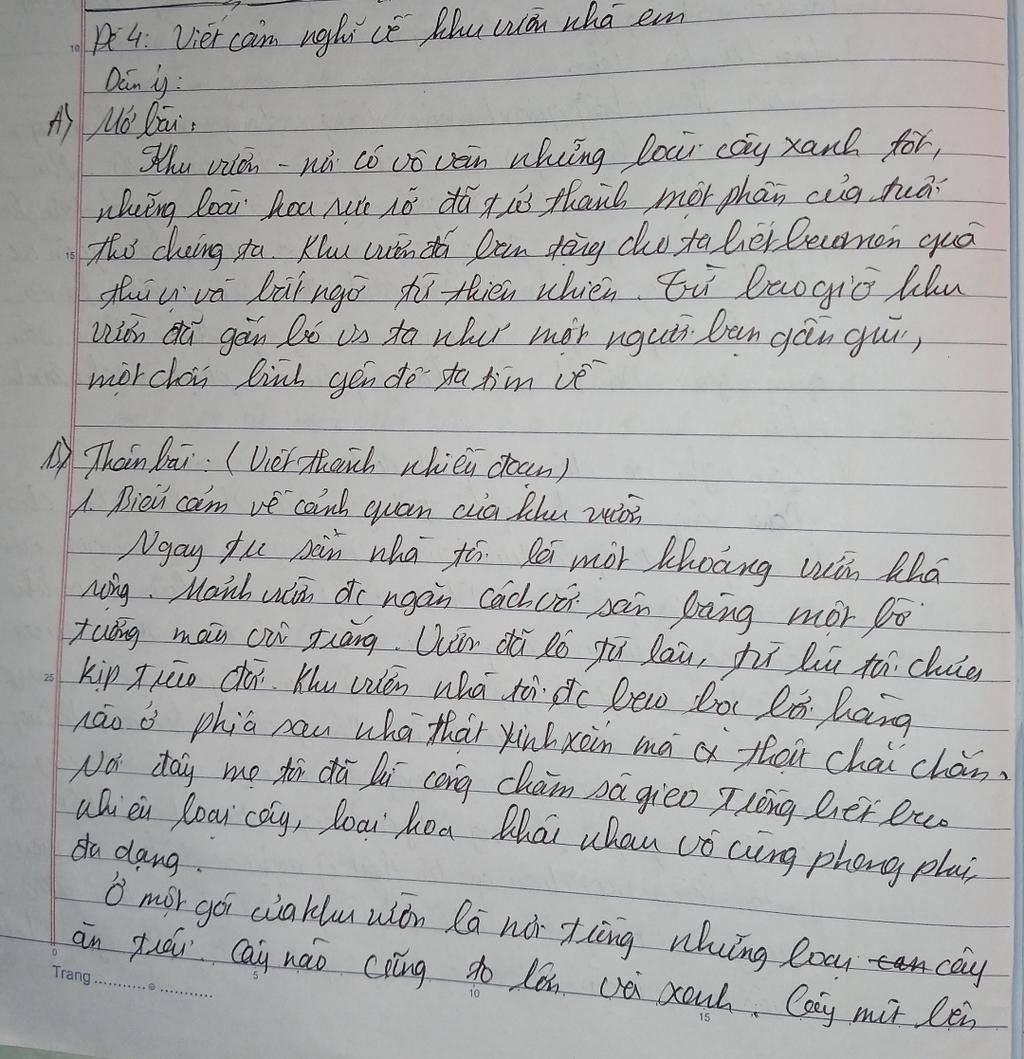 Đề 4: Viết cảm nghĩ về khu vườn nhà em
Dàn ý:
A) Mở bài:
Khu vườn - nơi có vô vàn những loài cây xanh tốt,
những loài hoa rực rỡ đã trở thành một phần của tuổi
thơ chúng ta. Khu vườn đã ban tặng cho ta biết bao món quà
thú vị và bất ngờ từ thiên nhiên. Từ bao giờ khu
vườn đã gắn bó vs ta như một người bạn gần gũi,
một chốn bình yên để ta tìm về
B) Thân bài: (Viết thành nhiều đoạn)
1. Biểu cảm về cảnh quan của khu vườn
Ngay trc sân nhà tôi là một khoảng vườn khá
rộng. Mảnh vườn đc ngăn cách với sân bằng một bờ
tường màu vôi trắng. Vườn đã có từ lâu, từ lúc tôi chưa
kịp trào đời. Khu vườn nhà tôi đc bao bọc bởi hàng
rào ở phía sau nhà thật xinh xắn mà thật chắc chắn.
Nơi đây mẹ tôi đã kì công chăm sá gieo trồng biết bao
nhiêu loại cây, loại hoa khác nhau vô cùng phong phú,
đa dạng.
Ở một góc của khu vườn là nơi trồng những loại cây
ăn trái. Cây nào cũng to lớn và xanh. Cây mít bên
25
10
15
Trang
0
5
10
15